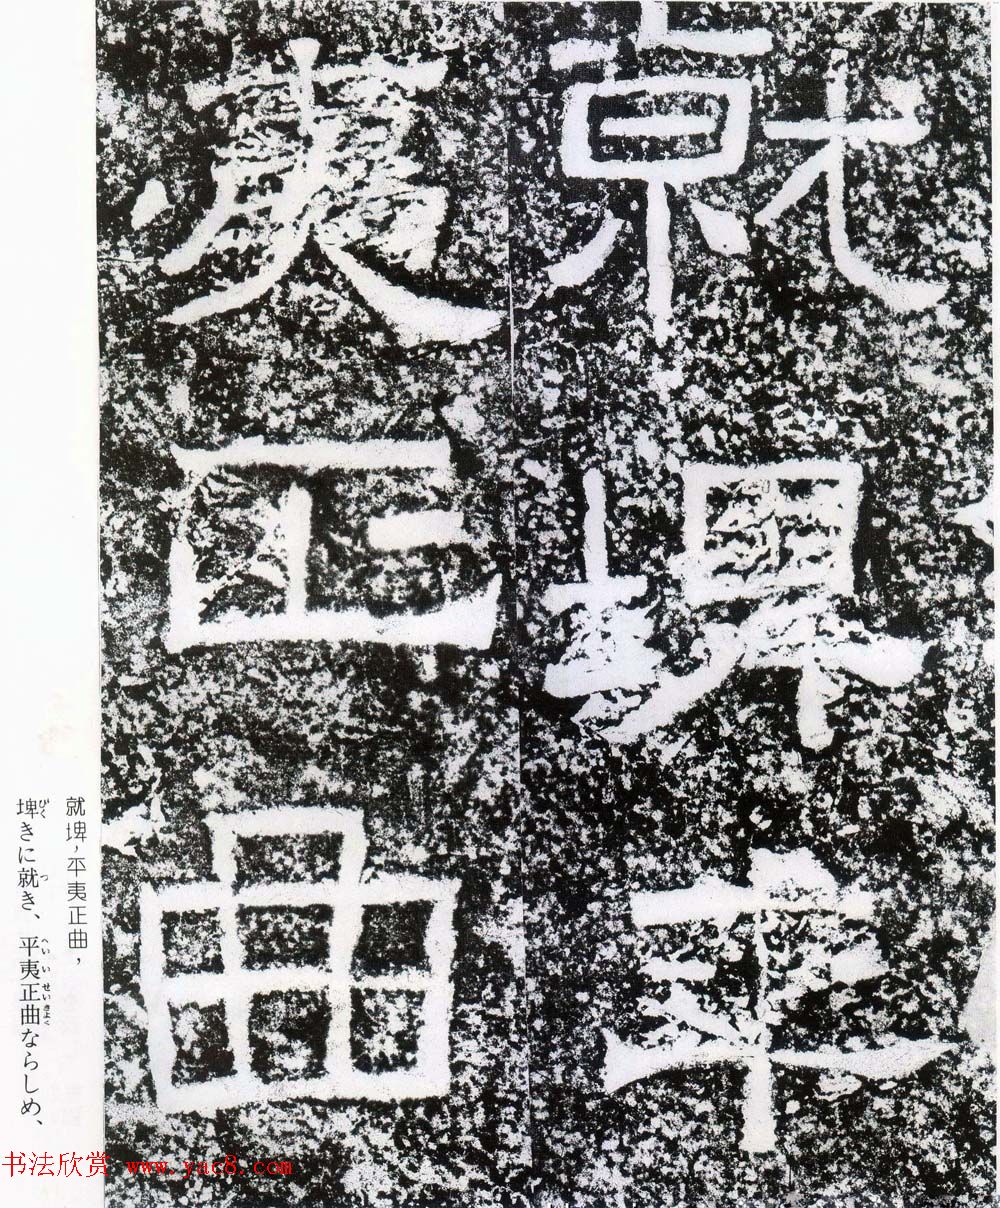 就埤平
夷正曲
就埤，平夷正曲，
埤きに就き、平夷正曲ならしめ、
书法欣赏 www.yac8.com